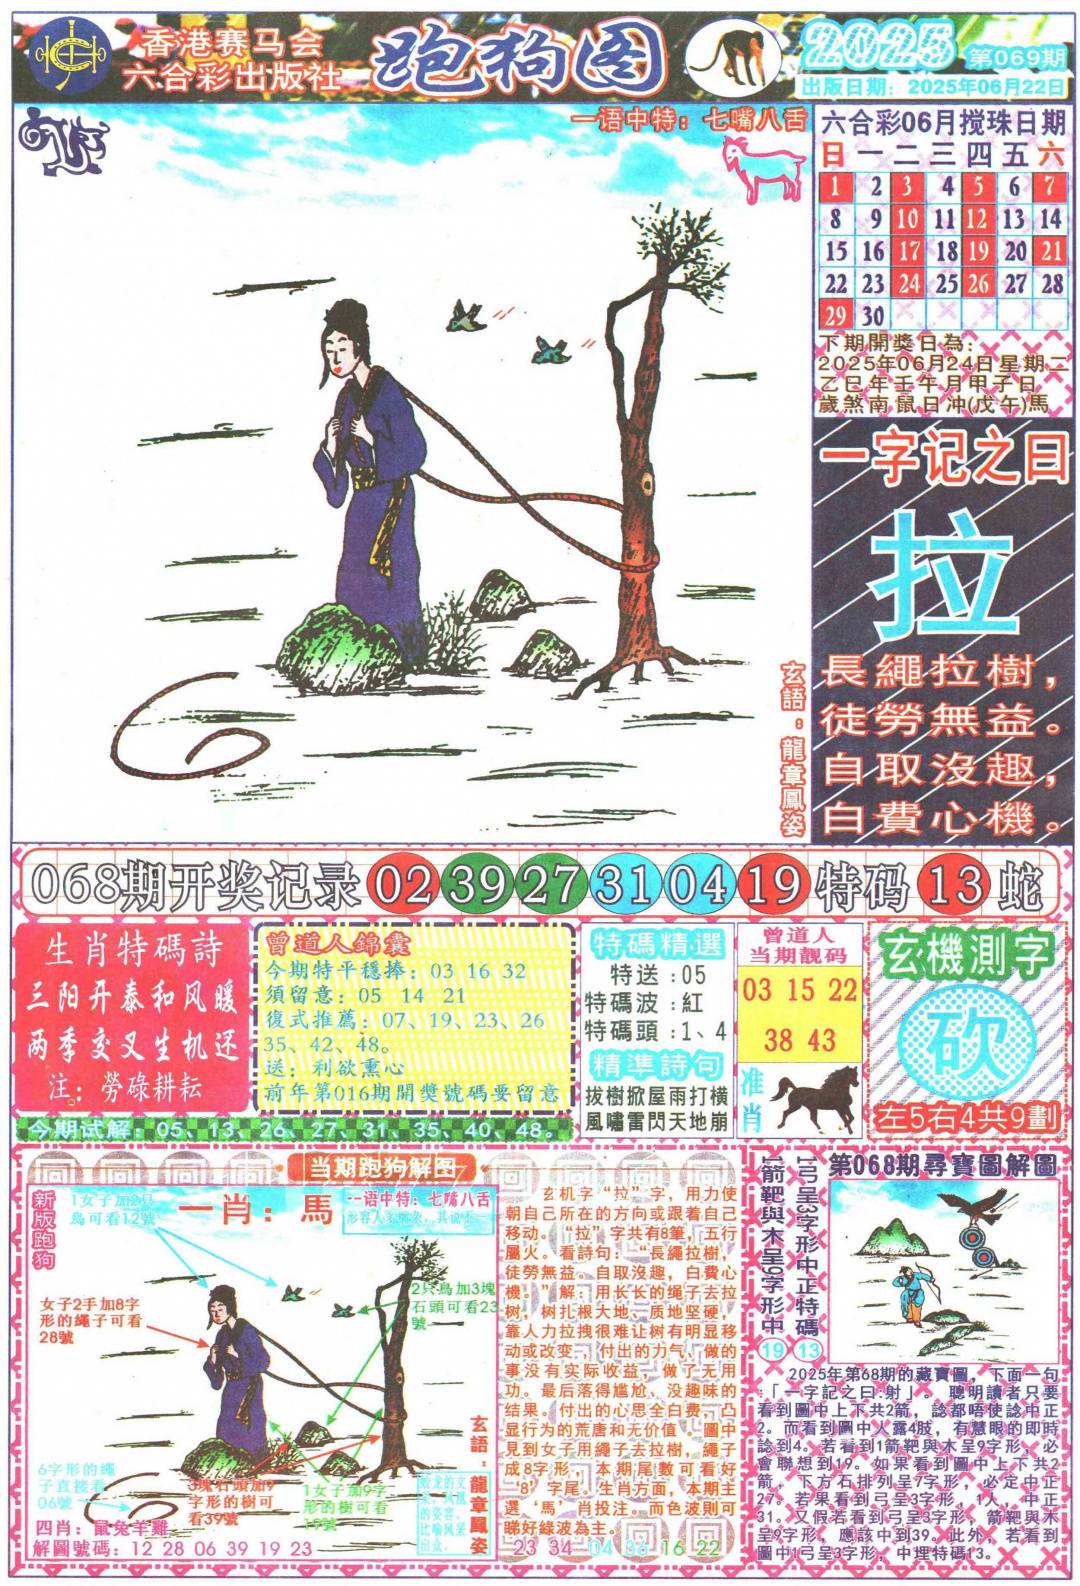 香港赛马会
六合彩出版社
跑狗图
2025
第069期
出版日期：2025年06月22日
一语中特：七嘴八舌
玄語：龍章鳳姿
六合彩06月搅珠日期
日一二三四五六
1 2 3 4 5 6 7
8 9 10 11 12 13 14
15 16 17 18 19 20 21
22 23 24 25 26 27 28
29 30
下期開獎日為：
2025年06月24日星期二
乙巳年壬午月甲子日
歲煞南鼠日冲(戊午)馬
一字记之曰
拉
長繩拉樹，
徒勞無益。
自取沒趣，
白費心機。
068期开奖记录 02 39 27 31 04 19 特码 13 蛇
生肖特碼詩
三阳开泰和风暖
两季交叉生机还
注：勞碌耕耘
曾道人錦囊
今期特平穩捧：03 16 32
須留意：05 14 21
復式推薦：07、19、23、26
35、42、48。
送：利欲熏心
前年第016期開獎號碼要留意
今期试解：05、13、26、27、31、35、40、48。
特碼精選
特送：05
特碼波：紅
特碼頭：1、4
精準詩句
拔樹掀屋雨打橫
風嘯雷閃天地崩
曾道人
当期靓码
03 15 22
38 43
准肖
玄機測字
砍
左5右4共9劃
当期跑狗解图
新版跑狗
1女子加2只
鳥可看12號
一肖：馬
一语中特：七嘴八舌
女子2手加8字
形的繩子可看
28號
2只鳥加3塊
石頭可看23
號
6字形的繩
子直接看
06號
3塊石頭加9
字形的樹可
看39號
1女子加9字
形的樹可看
19號
玄語：龍章鳳姿
四肖：鼠兔羊雞
解圖號碼：12 28 06 39 19 23
玄机字“拉”字，用力使
朝自己所在的方向或跟着自己
移动。“拉”字共有8筆，五行
屬火。看詩句：“長繩拉樹，
徒勞無益。自取沒趣，白費心
機。”解：用长长的绳子去拉
树，树扎根大地、质地坚硬，
靠人力拉拽很难让树有明显移
动或改变，付出的力气、做的
事没有实际收益，做了无用
功。最后落得尴尬、没趣味的
结果。付出的心思全白费，凸
显行为的荒唐和无价值。圖中
見到女子用繩子去拉樹，繩子
成8字形。本期尾數可看好
‘8’字尾。生肖方面，本期主
選‘馬’肖投注。而色波則可
睇好綠波為主。
23 34 04 36 16 22
第068期尋寶圖解圖
1弓呈3字形中正特碼13
1箭靶與木呈9字形中19
2025年第68期的藏寶圖，下面一句
：「一字記之曰:射」。聰明讀者只要
看到圖中上下共2箭，諗都唔使諗中正
2。而看到圖中人露4肢，有慧眼的即時
諗到4。若看到1箭靶與木呈9字形，必
會聯想到19。如果看到圖中上下共2
箭，下方石排列呈7字形，必定中正
27。若果看到弓呈3字形，1人，中正
31。又假若看到弓呈3字形，箭靶與木
呈9字形，應該中到39。此外，若看到
圖中1弓呈3字形，中埋特碼13。